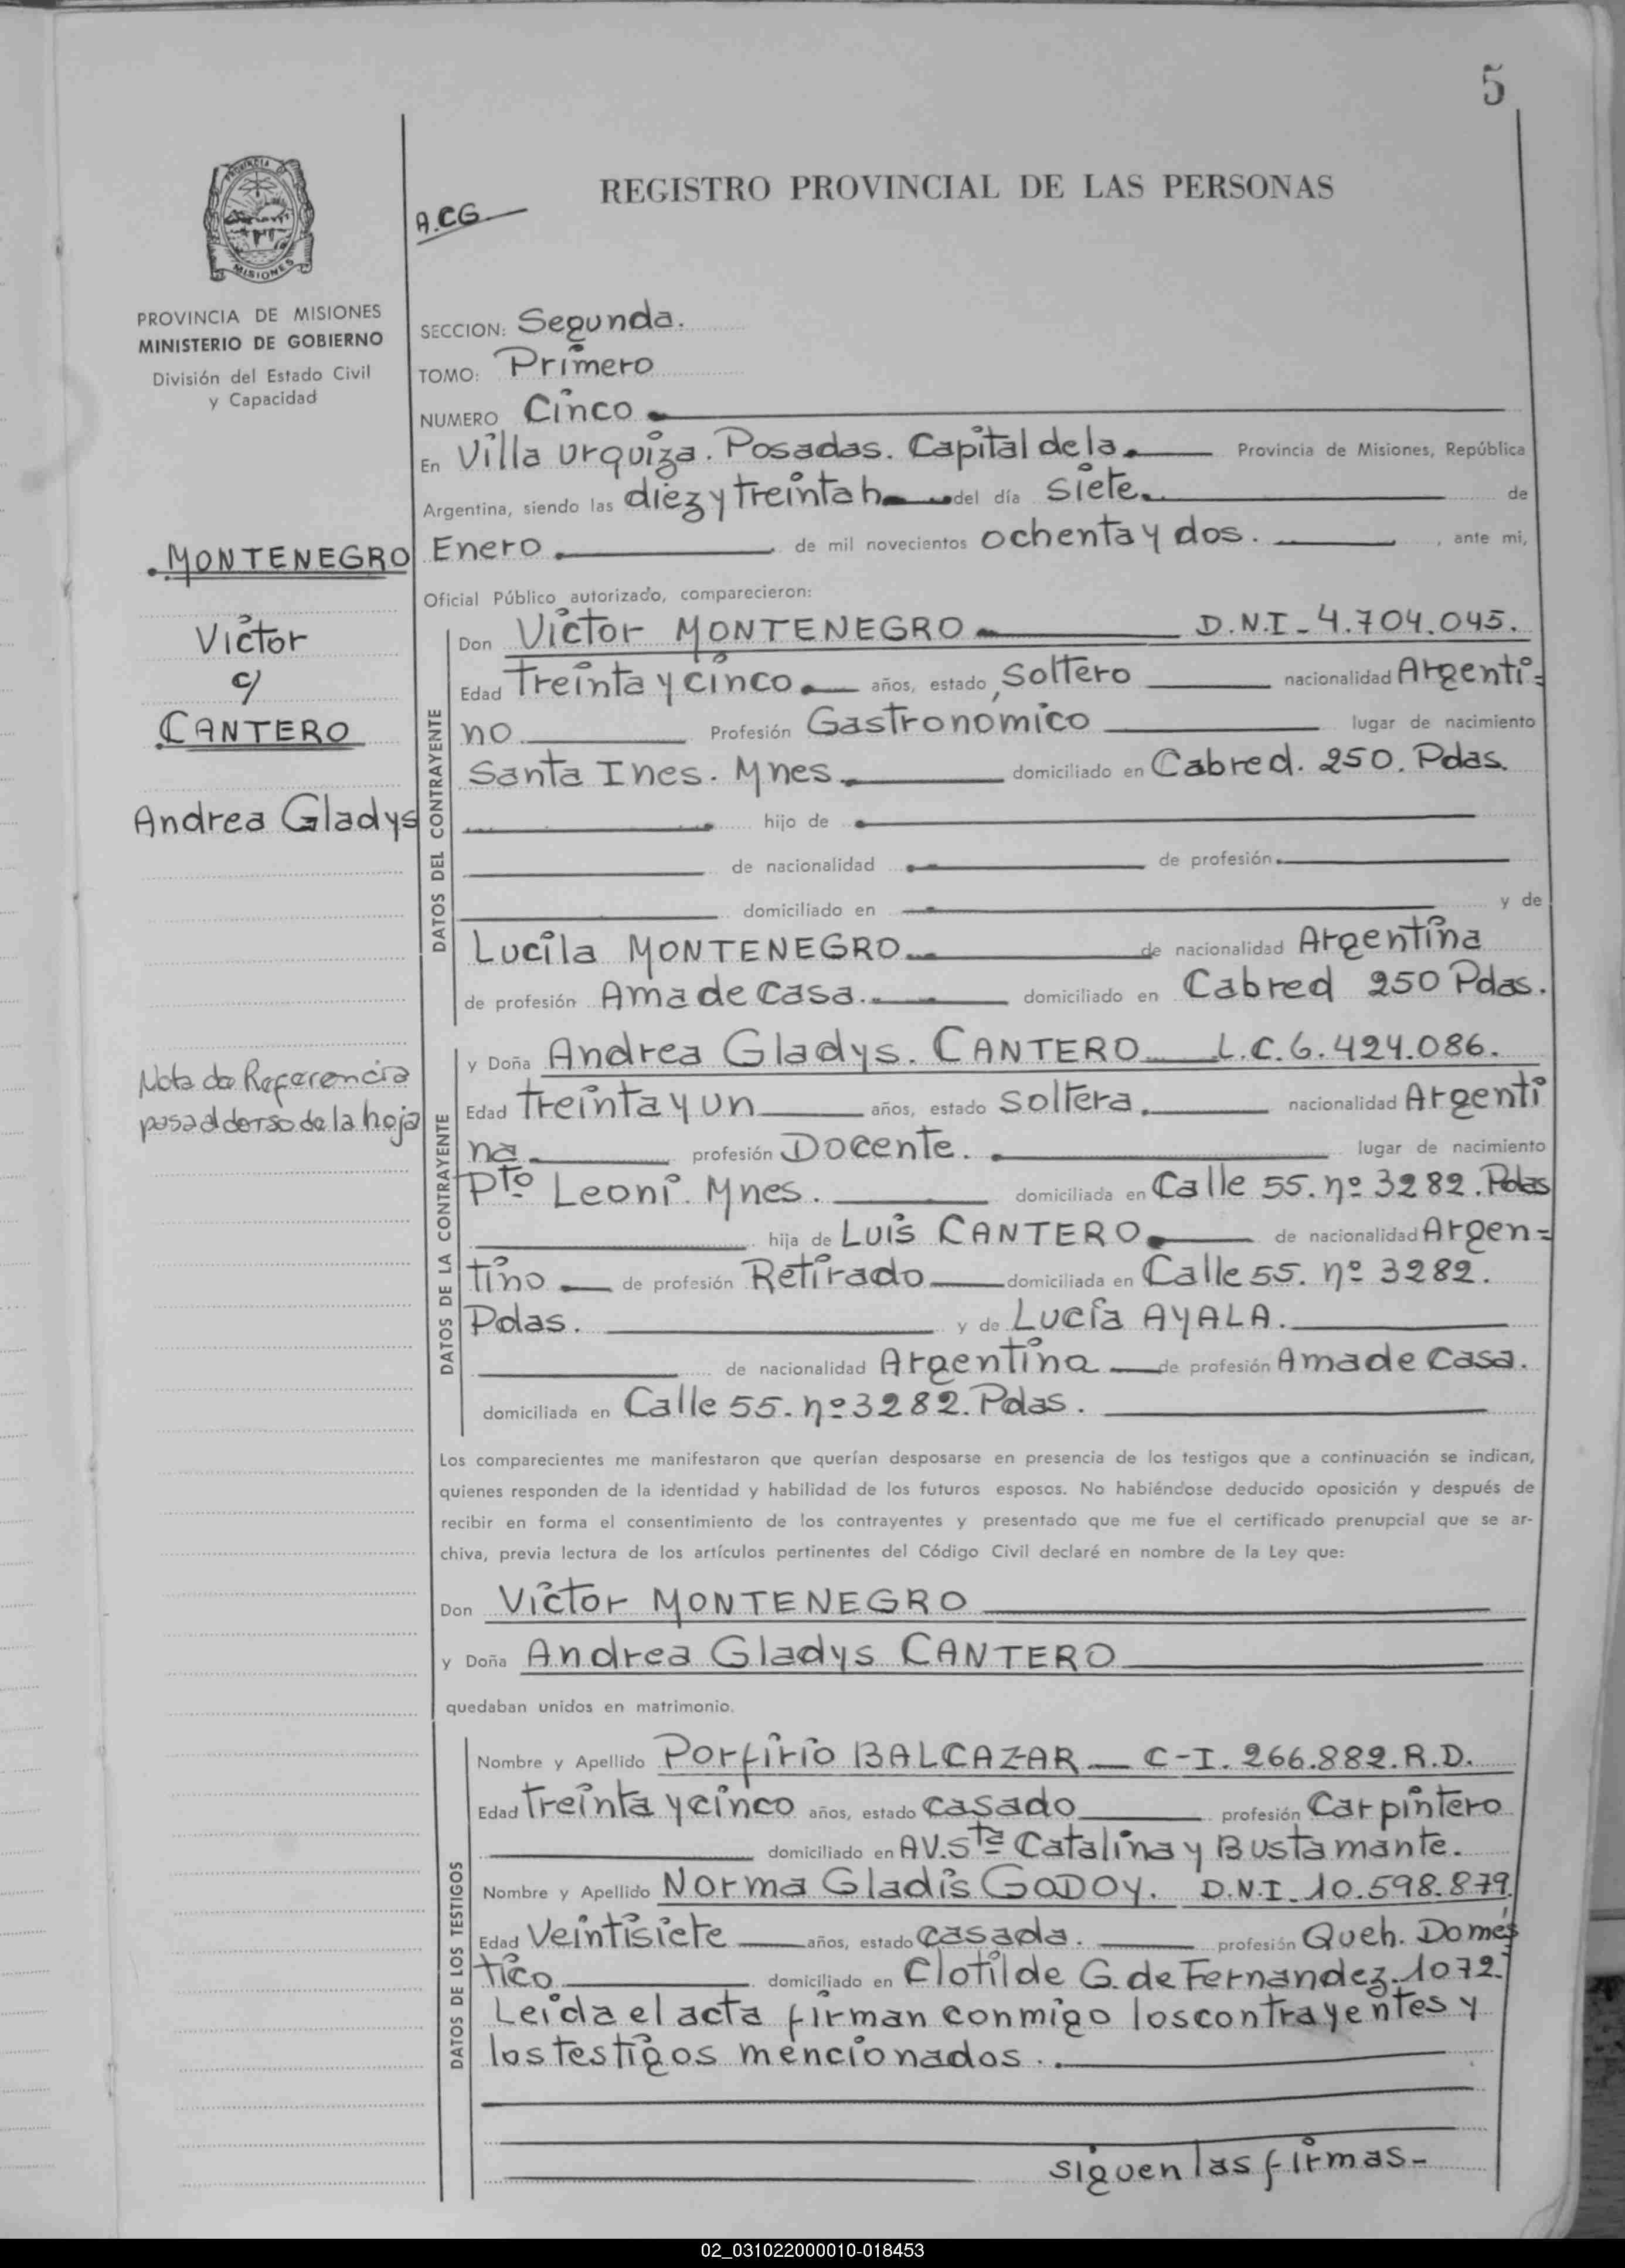 5
REGISTRO PROVINCIAL DE LAS PERSONAS
A.CG
PROVINCIA
MISIONES
PROVINCIA DE MISIONES
MINISTERIO DE GOBIERNO
División del Estado Civil
y Capacidad
MONTENEGRO
Victor
c/
CANTERO
Andrea Gladys
Nota de Referencia
pasa al dorso de la hoja
SECCION: Segunda.
TOMO: Primero
NUMERO Cinco
En Villa Urquiza. Posadas. Capital de la Provincia de Misiones, República
Argentina, siendo las diez y treinta h del día siete. de
Enero de mil novecientos ochenta y dos. , ante mi,
Oficial Público autorizado, comparecieron:
DATOS DEL CONTRAYENTE
Don Victor MONTENEGRO D.N.I - 4.704.045.
Edad Treinta y cinco años, estado, soltero nacionalidad Argenti=
no Profesión Gastronomico lugar de nacimiento
Santa Ines. Mnes. domiciliado en Cabred. 250. Pdas.
hijo de
de nacionalidad de profesión
domiciliado en y de
Lucila MONTENEGRO de nacionalidad Argentina
de profesión Ama de casa. domiciliado en Cabred 250 Pdas.
DATOS DE LA CONTRAYENTE
y Doña Andrea Gladys. CANTERO L.C. 6.424.086.
Edad treinta y un años, estado soltera. nacionalidad Argenti
na profesión Docente. lugar de nacimiento
Pto Leoni. Mnes. domiciliada en Calle 55. nº 3282. Pdas
hija de Luis CANTERO de nacionalidad Argen=
tino de profesión Retirado domiciliada en Calle 55. nº 3282.
Pdas. y de Lucía AYALA.
de nacionalidad Argentina de profesión Ama de Casa.
domiciliada en Calle 55. nº 3282. Pdas.
Los comparecientes me manifestaron que querían desposarse en presencia de los testigos que a continuación se indican,
quienes responden de la identidad y habilidad de los futuros esposos. No habiéndose deducido oposición y después de
recibir en forma el consentimiento de los contrayentes y presentado que me fue el certificado prenupcial que se ar-
chiva, previa lectura de los artículos pertinentes del Código Civil declaré en nombre de la Ley que:
Don Victor MONTENEGRO
y Doña Andrea Gladys CANTERO
quedaban unidos en matrimonio.
DATOS DE LOS TESTIGOS
Nombre y Apellido Porfirio BALCAZAR C-I. 266.882. R.D.
Edad treinta y cinco años, estado casado profesión Carpintero
domiciliado en AV. Sta Catalina y Bustamante.
Nombre y Apellido Norma Gladis GODOY. D.N.I. 10.598.879.
Edad Veintisiete años, estado casada. profesión Queh. Domés
tico domiciliado en Clotilde G. de Fernandez. 1072.
Leida el acta firman conmigo los contrayentes y
los testigos mencionados.
siguen las firmas-
02_031022000010-018453